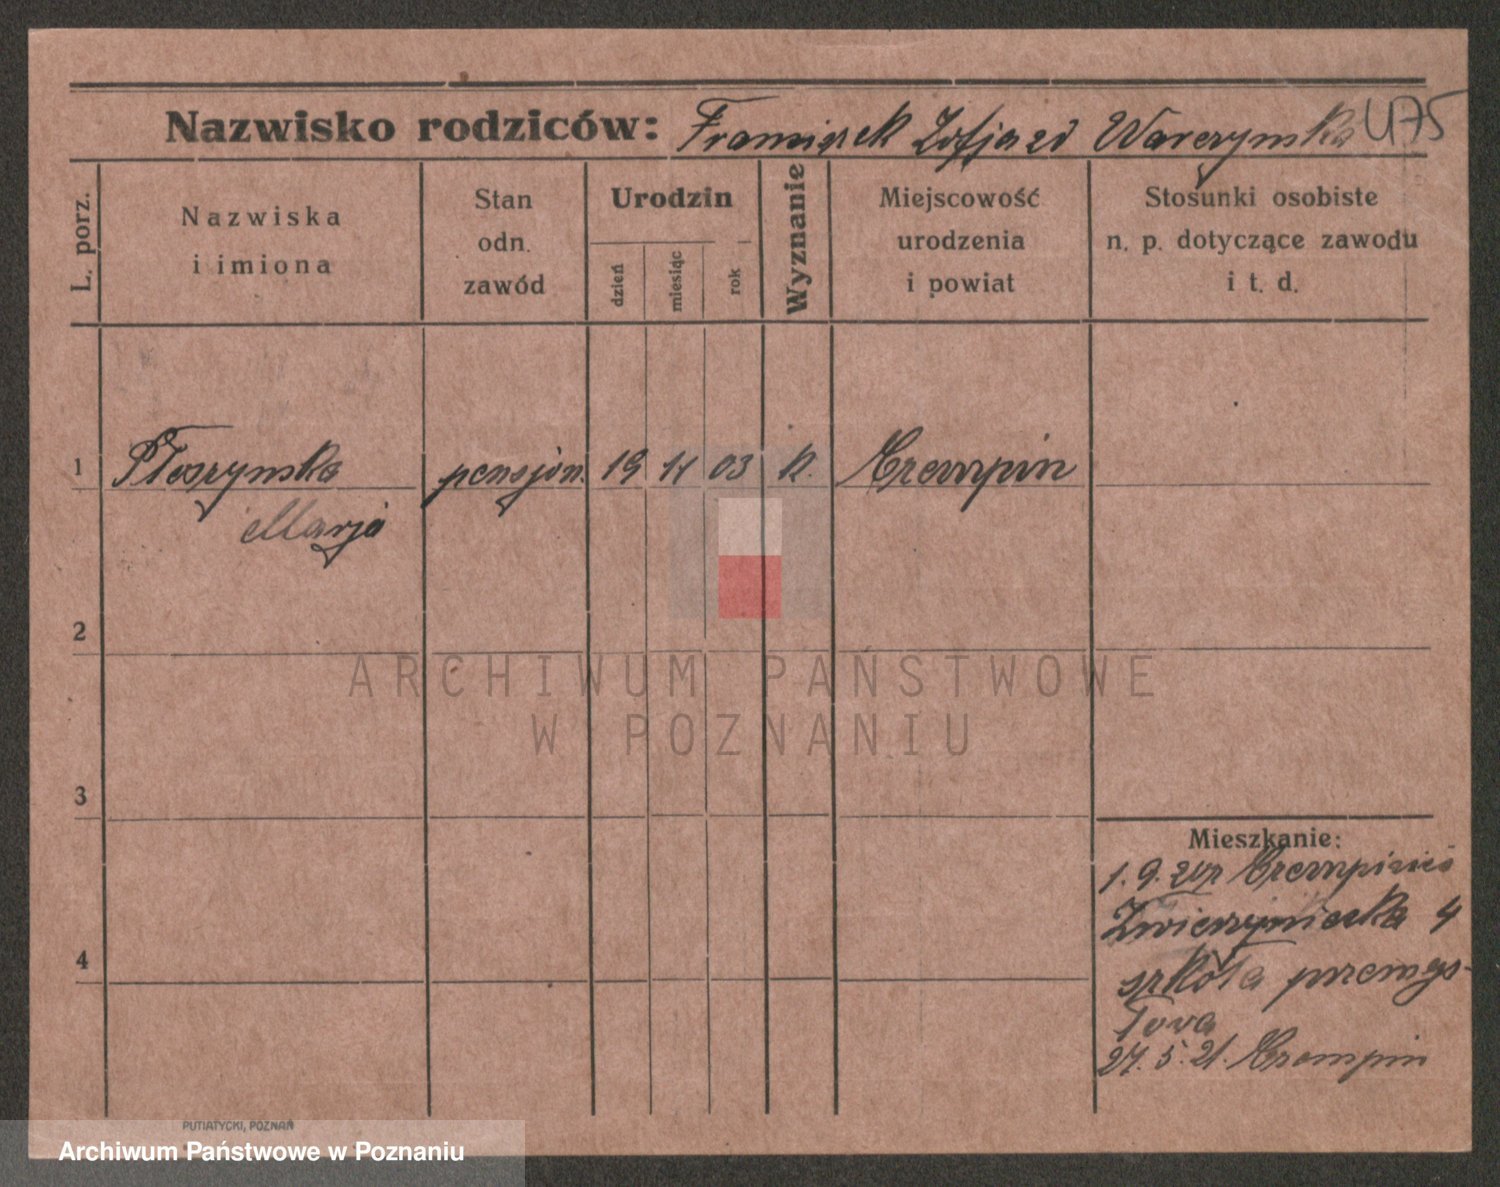 Nazwisko rodziców: Franciszek Zofja zd Warczynska 475
L. porz.
Nazwiska i imiona
Stan odn. zawód
Urodzin
dzień
miesiąc
rok
Wyznanie
Miejscowość urodzenia i powiat
Stosunki osobiste n. p. dotyczące zawodu i t. d.
1 Płoszynska pensjon. 19 11 03 k. Czempin
Marja
2
ARCHIWUM PAŃSTWOWE
W POZNANIU
3
Mieszkanie:
1. 9. 20 z Czempinia
Zwierzyniecka 4
4
szkoła przemys-
łova
27. 5. 21. Czempin
PUTIATYCKI, POZNAŃ
Archiwum Państwowe w Poznaniu